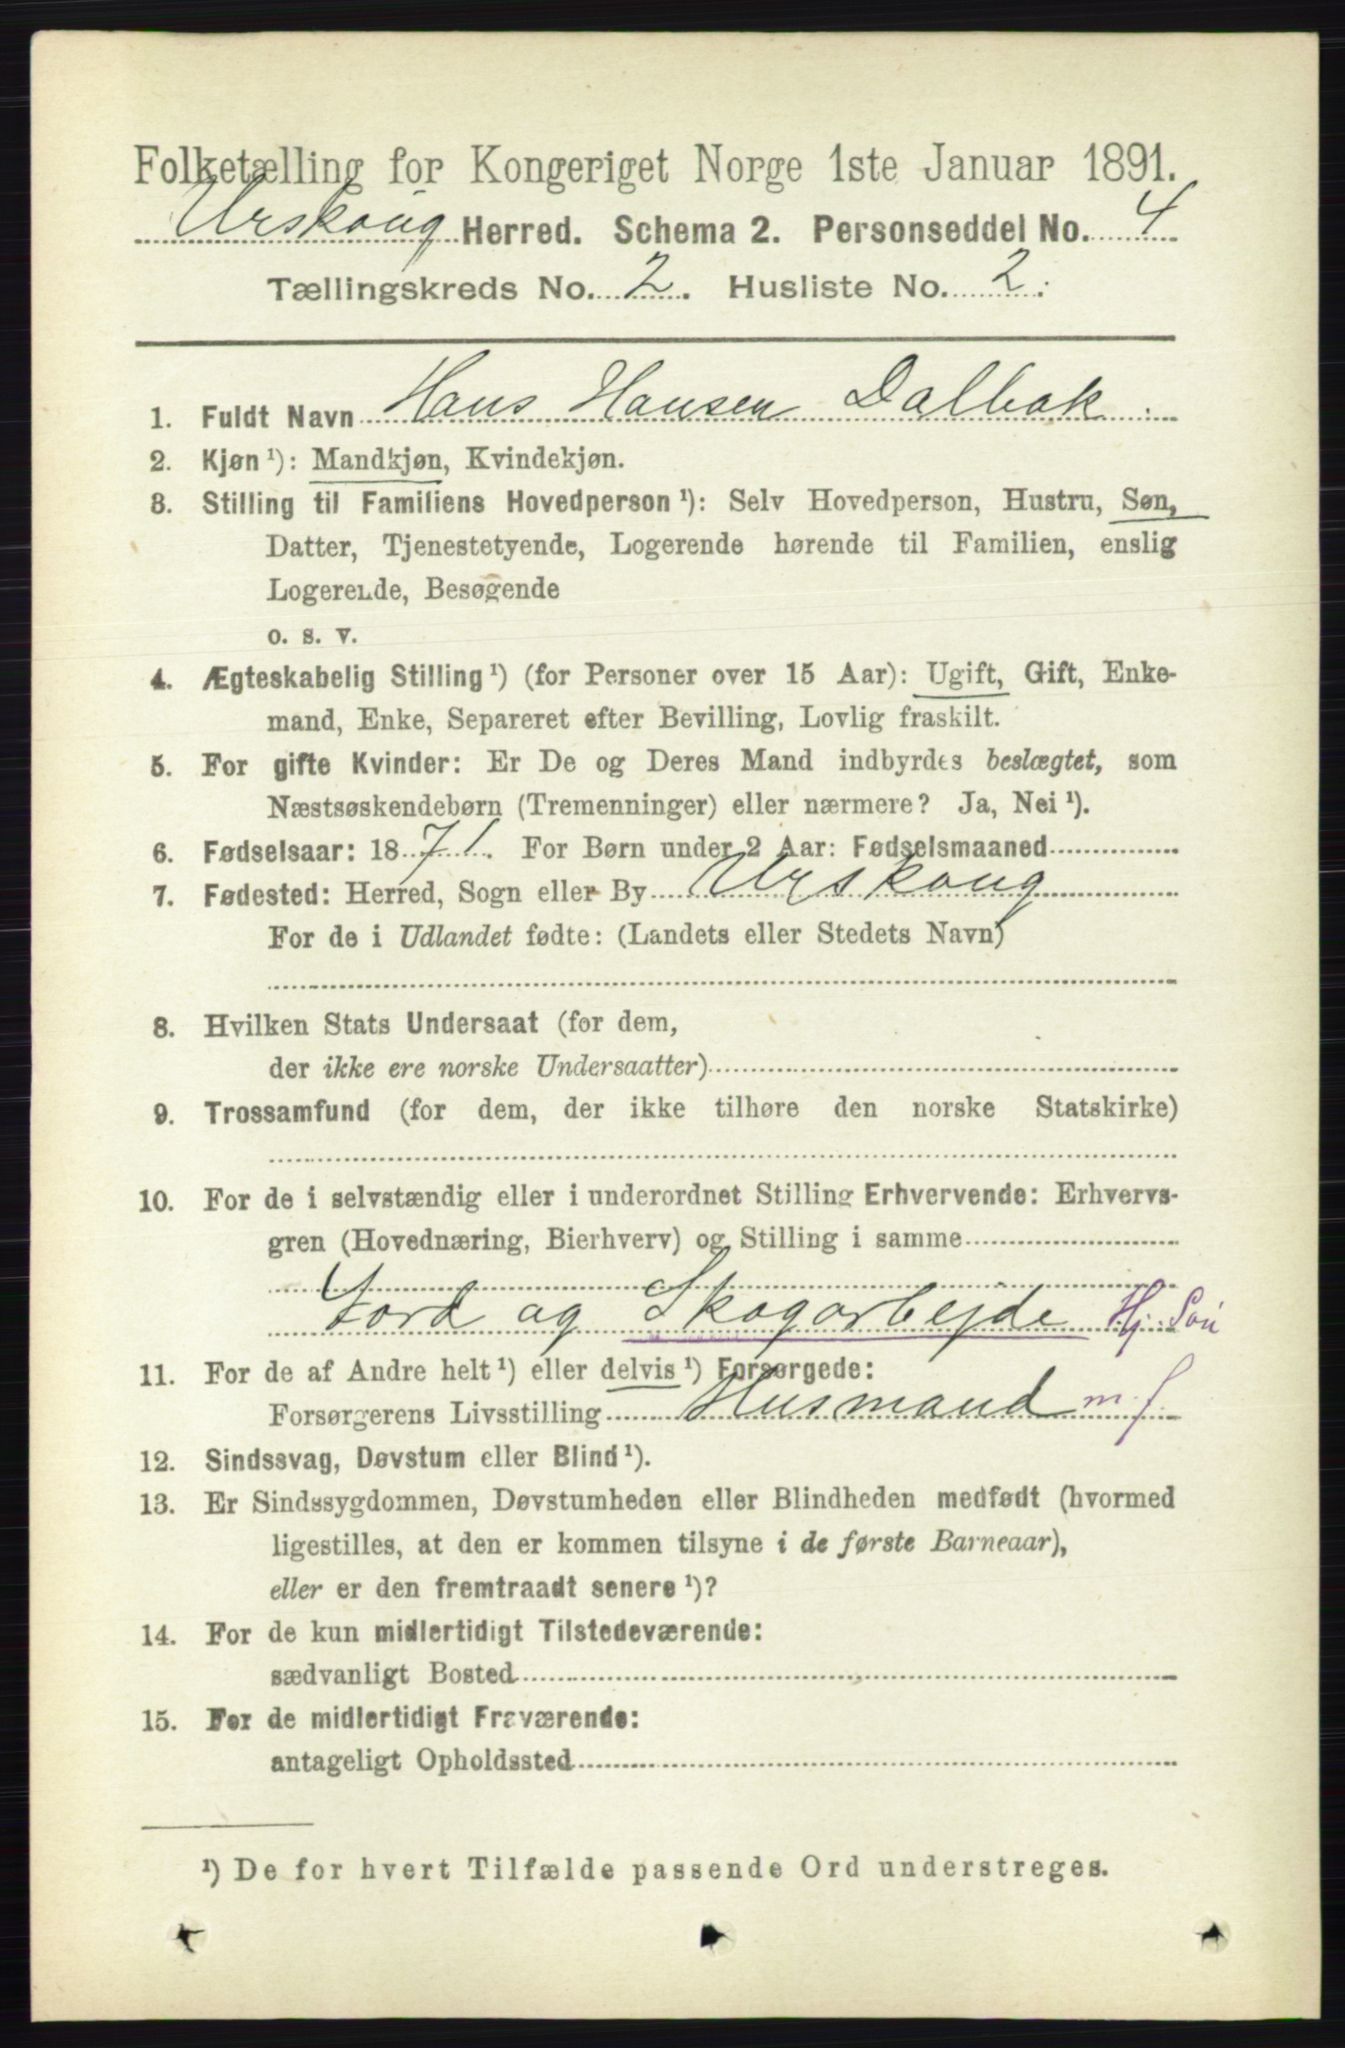 Folketælling for Kongeriget Norge 1ste Januar 1891.
Urskoug Herred. Schema 2. Personseddel No. 4
Tællingskreds No. 2. Husliste No. 2.
1. Fuldt Navn Hans Hansen Dalbak.
2. Kjøn¹): Mandkjøn, Kvindekjøn.
3. Stilling til Familiens Hovedperson¹): Selv Hovedperson, Hustru, Søn,
Datter, Tjenestetyende, Logerende hørende til Familien, enslig
Logerende, Besøgende
o. s. v.
4. Ægteskabelig Stilling¹) (for Personer over 15 Aar): Ugift, Gift, Enke-
mand, Enke, Separeret efter Bevilling, Lovlig fraskilt.
5. For gifte Kvinder: Er De og Deres Mand indbyrdes beslægtet, som
Næstsøskendebørn (Tremenninger) eller nærmere? Ja, Nei¹).
6. Fødselsaar: 1871. For Børn under 2 Aar: Fødselsmaaned
7. Fødested: Herred, Sogn eller By Urskoug
For de i Udlandet fødte: (Landets eller Stedets Navn)
8. Hvilken Stats Undersaat (for dem,
der ikke ere norske Undersaatter)
9. Trossamfund (for dem, der ikke tilhøre den norske Statskirke)
10. For de i selvstændig eller i underordnet Stilling Erhvervende: Erhvervs-
gren (Hovednæring, Bierhverv) og Stilling i samme
Jord og Skogarbejde Hj. Søn
11. For de af Andre helt¹) eller delvis¹) Forsørgede:
Forsørgerens Livsstilling Husmand m. j.
12. Sindssvag, Døvstum eller Blind¹).
13. Er Sindssygdommen, Døvstumheden eller Blindheden medfødt (hvormed
ligestilles, at den er kommen tilsyne i de første Barneaar),
eller er den fremtraadt senere¹)?
14. For de kun midlertidigt Tilstedeværende:
sædvanligt Bosted
15. For de midlertidigt Fraværende:
antageligt Opholdssted
¹) De for hvert Tilfælde passende Ord understreges.